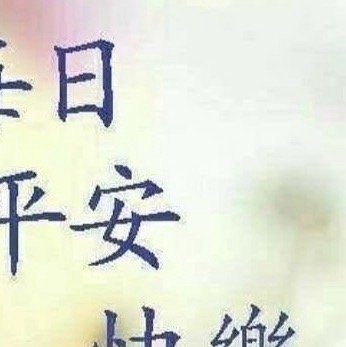 每日
平安
快樂